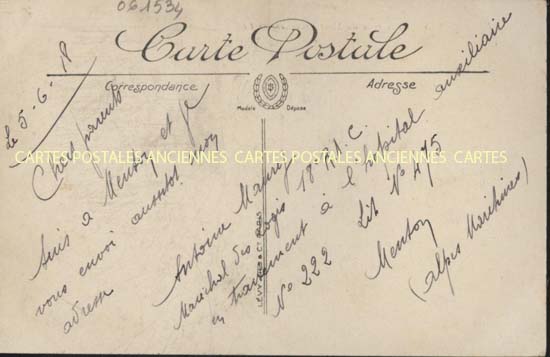 061534
Carte Postale
Correspondance
Adresse
Modèle Déposé
LEVY FILS & Cie PARIS
CARTES POSTALES ANCIENNES CARTES POSTALES ANCIENNES CARTES
Le 5-6-18
Chers parents
Suis a Menton et je
vous envoi aussitot mon
adresse
Antoine Maurez
Maréchal des logis 18 R.I.C.
en traitement à l'hôpital auxiliaire
No 222 Lit No 475
Menton
(Alpes Maritimes)